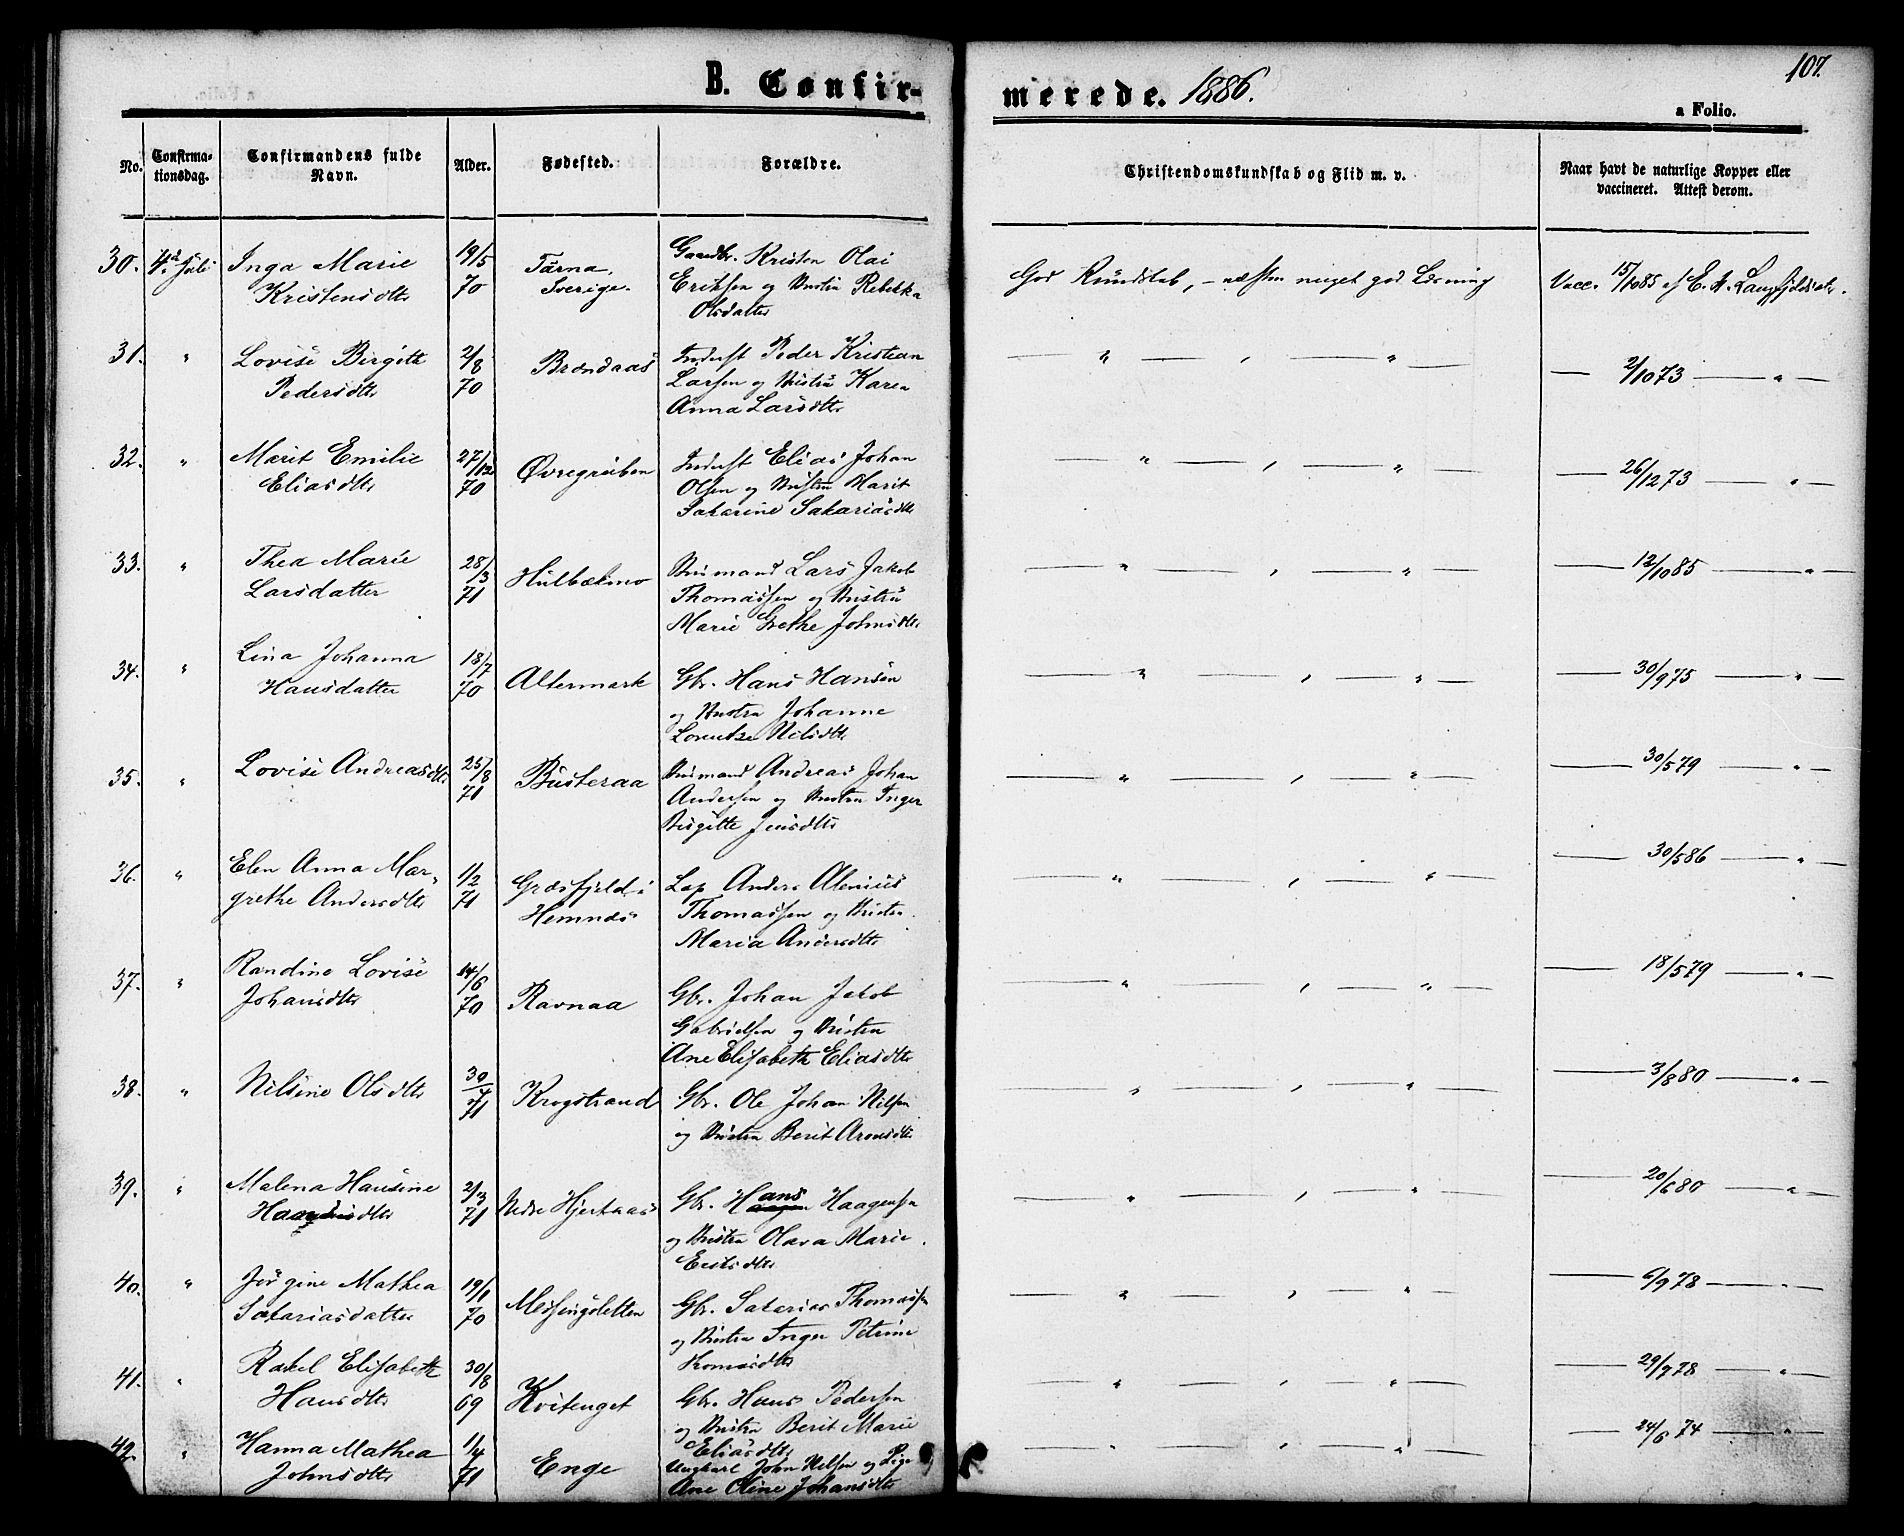 B. Confirmerede. 1886.
107.
a Folio.
No. Confirmationsdag. Confirmandens fulde Navn. Alder. Fødested. Forældre. Christendomskundskab og Flid m. v. Naar havt de naturlige Kopper eller vaccineret. Attest derom.
30. 4de Juli Inga Marie 19/5 Tärna, Gaardbr. Kristen Olai
Kristensdtr 70 Sverige. Eriksen og Hustru Rebekka
Olsdatter
God Kundskab, – næsten meget god Læsning Vacc. 15/10 85 af E. A.
31. " Lovise Birgitte 2/8 Brændaas Inderst Peder Kristian
Pedersdtr 70 Larsen og Hustru Karen
Anna Larsdtr
— " — , — " — — 2/10 73 — " —
32. " Marit Emilie 27/12 Øvregruben Inderst Elias Johan
Eliasdtr 70 Olsen og Hustru Marit
Sakarine Sakariasdtr
— " — , — " — — 26/12 73 — "
33. " Thea Marie 28/3 Hulbækmo Husmand Lars Jakob
Larsdatter 71 Thomassen og Hustru
Marie Grethe Johnsdtr
— " — , — " — — 12/10 85 — " —
34. " Lina Johanna 18/7 Altermark Gbr. Hans Hansen
Hansdatter 70 og Hustru Johanne
Lorentze Nilsdtr
— " — , — " — — 30/9 75 — " —
35. " Lovise Andreasdtr 25/8 Busteraa Husmand Andreas Johan
71 Andersen og Hustru Inger
Birgitte Jensdtr
— " — , — " — — 30/5 79 — " —
36. " Elen Anna Mar- 1/2 Græsfjeld i Lap Anders Alenius
grethe Andersdtr 71 Hemnæs Thomassen og Hustru
Maria Andersdtr
— " — , — " — — 30/5 86 — "
37. " Randine Lovise 14/6 Ravnaa Gbr. Johan Jakob
Johansdtr 70 Gabrielsen og Hustru
Ane Elisabeth Eliasdtr
— " — , — " — — 18/5 79 — "
38. " Nilsine Olsdtr 30 Krogstrand Gbr. Ole Johan Nilsen
71 og Hustru Berit Aronsdtr
" — , — " — — 3/8 80 — "
39. " Malena Hansine 2/3 Nedre Hjertaas Gbr. Hans Haagensen
71 og Hustru Olava Marie
— " — , — " — — 20/6 80 — " —
40. " Jørgine Mathea 19/1 Messingsletten Gbr. Sakarias Thomassen
Sakariasdatter 70 og Hustru Inger Petrine
Thomasdtr
— " — , — " — — 6/9 78 —
41. " Rakel Elisabeth 30/8 Kvitenget Gbr. Hans Pedersen
Hansdtr 69 og Hustru Berit Marie
Eliasdtr
— " — , — " — — 29/7 78 — "
42. " Hanna Mathea 1/4 Enge Ungkarl John Nilsen og Pige
Johnsdtr 71 Ane Oline Johansdtr
— , — " — — 24/6 74 — "